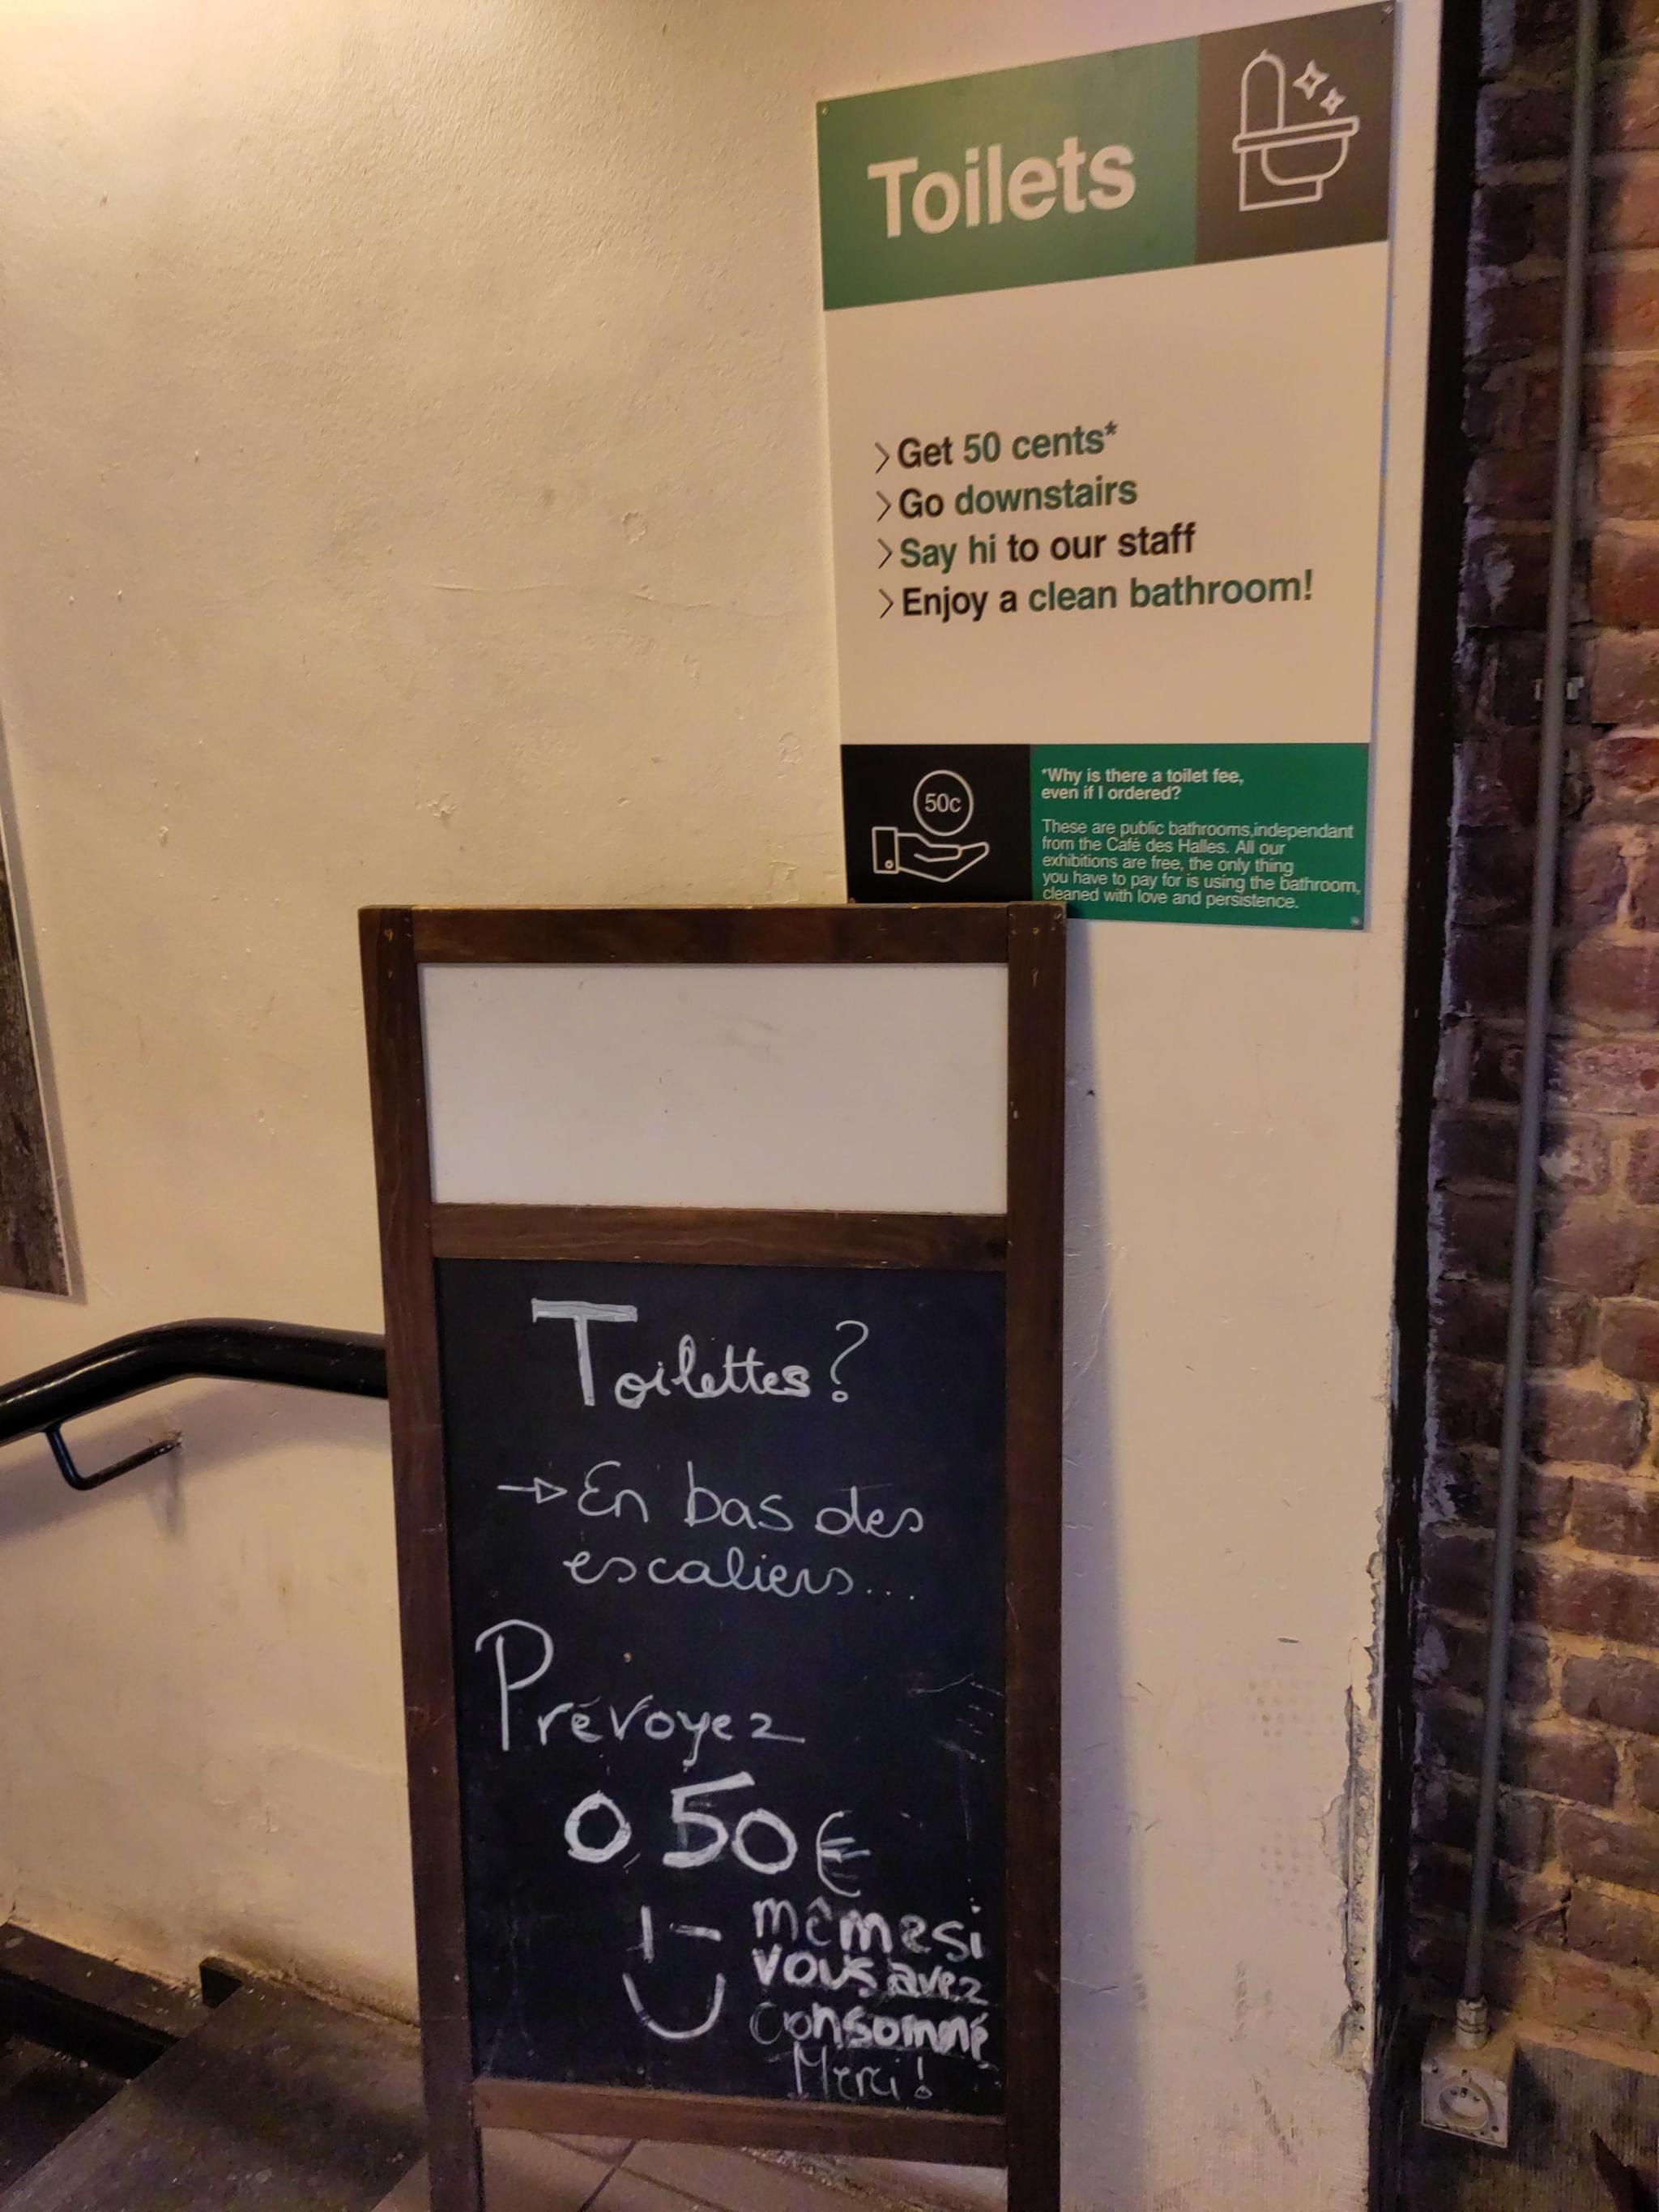 Toilets
Get 50 cents*
Go downstairs
Say hi to our staff
Enjoy a clean bathroom!
50c
*Why is there a toilet fee,
even if I ordered?
These are public bathrooms,independant
from the Café des Halles. All our
exhibitions are free, the only thing
you have to pay for is using the bathroom,
cleaned with love and persistence.
Toilettes?
→ En bas des
escaliers...
Prévoyez
0,50€
même si
vous avez
consommé
Merci!